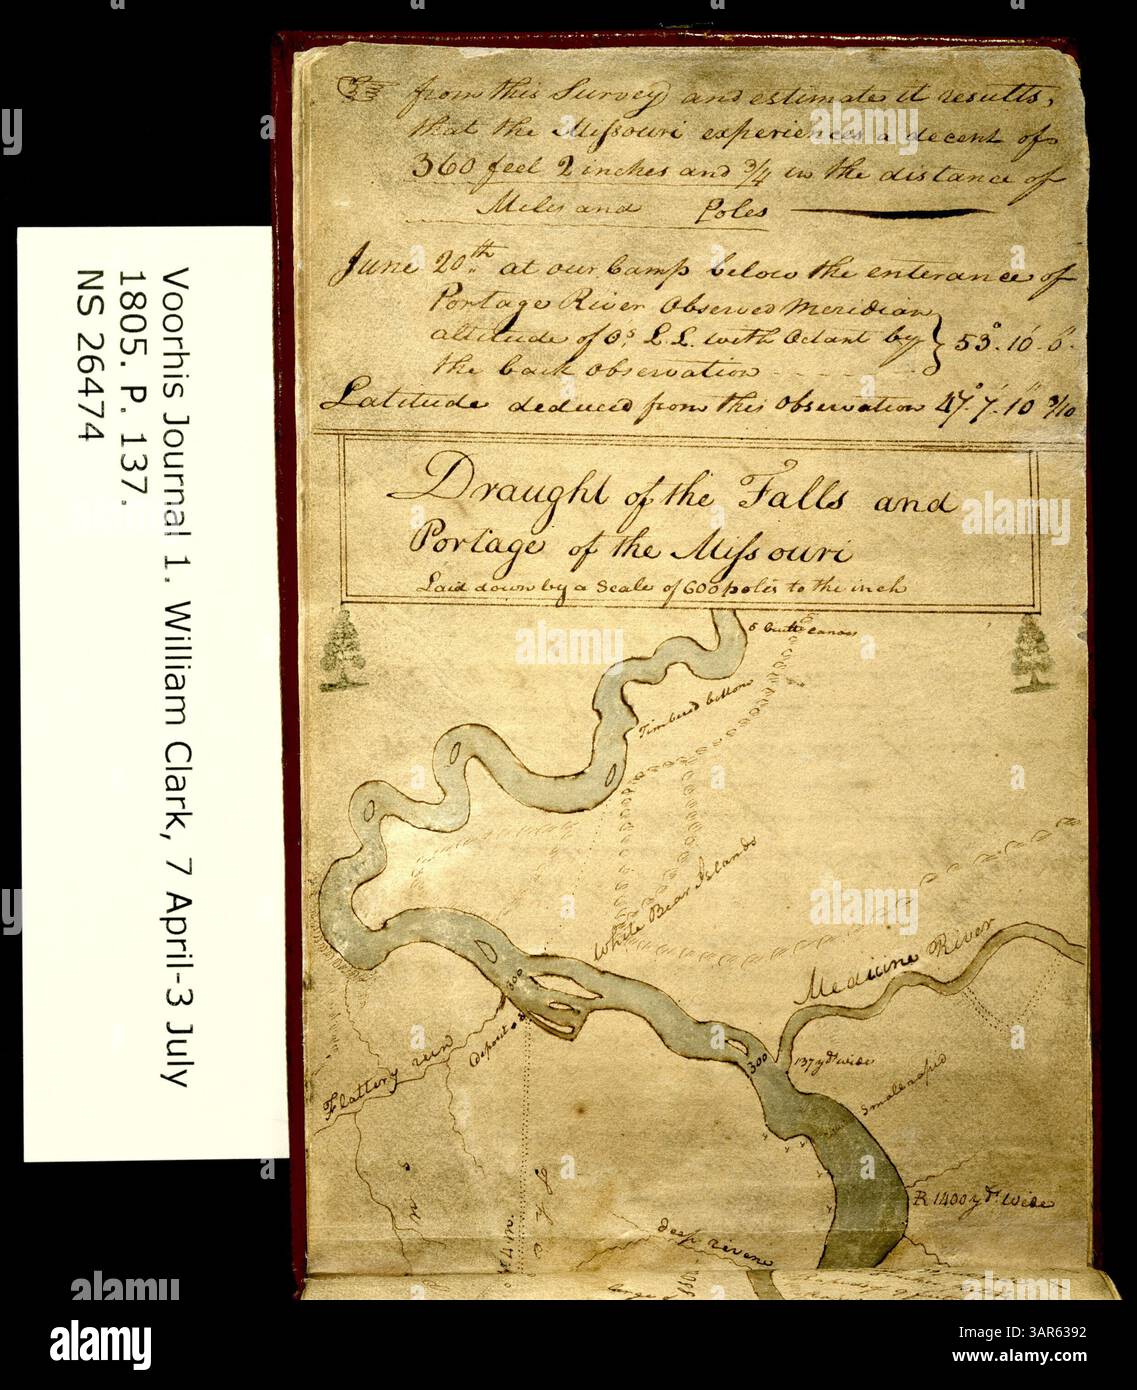 from this Survey and estimate it results,
that the Missouri experiences a decent of
360 feet 2 inches and 3/4 in the distance of
Miles and Poles
June 20th at our Camp below the enterance of
Portage River Observed Meridian
altitude of Os L.L. with Octant by } 53° 10' 0"
the back observation
Latitude deduced from this observation 47° 7' 10" 3/10
Draught of the Falls and
Portage of the Missouri
Laid down by a Scale of 600 poles to the inch
Timbered bottom
White Bear Islands
Medicine River
300
Deposit
Flattery run
300
137 yds wide
Small rapid
R 1400 yds Wide
deep rivene
Voorhis Journal 1. William Clark, 7 April-3 July
1805. P. 137.
NS 26474
alamy
Image ID: 3AR6392
www.alamy.com